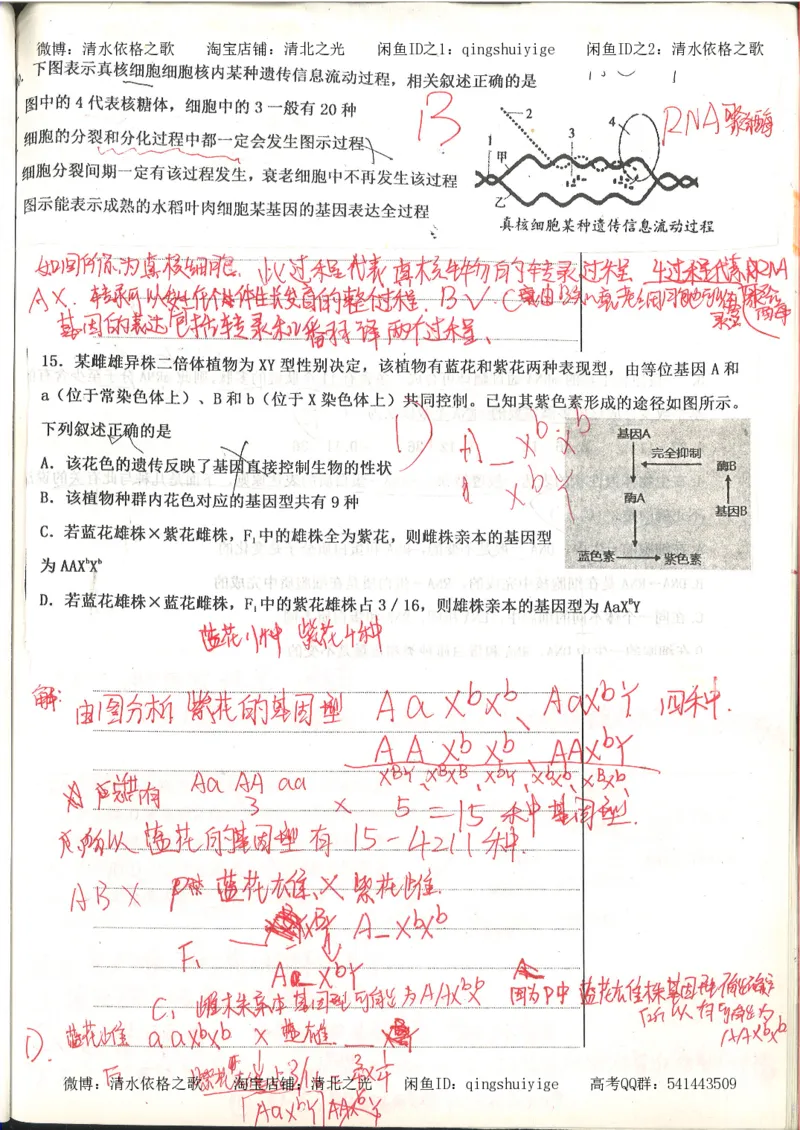 微博：清水依格之歌 淘宝店铺：清北之光 闲鱼ID之1：qingshuiyige 闲鱼ID之2：清水依格之歌
下图表示真核细胞细胞核内某种遗传信息流动过程，相关叙述正确的是
图中的 4 代表核糖体，细胞中的 3 一般有 20 种
细胞的分裂和分化过程中都一定会发生图示过程
细胞分裂间期一定有该过程发生，衰老细胞中不再发生该过程
图示能表示成熟的水稻叶肉细胞某基因的基因表达全过程
B
1
2
3
4
甲
乙
RNA聚合酶
真核细胞某种遗传信息流动过程
如图所示为真核细胞，此过程代表真核生物的转录过程 4过程代表RNA
A×. 转录可以发生在个体生长发育的整个过程. B√. C
基因的表达包括转录和翻译两个过程.
15．某雌雄异株二倍体植物为 XY 型性别决定，该植物有蓝花和紫花两种表现型，由等位基因 A 和
a（位于常染色体上）、B 和 b（位于 X 染色体上）共同控制。已知其紫色素形成的途径如图所示。
下列叙述正确的是
A．该花色的遗传反映了基因直接控制生物的性状
B．该植物种群内花色对应的基因型共有 9 种
C．若蓝花雄株×紫花雌株，F₁中的雄株全为紫花，则雌株亲本的基因型
为 AAXᵇXᵇ
D．若蓝花雄株×蓝花雌株，F₁中的紫花雄株占 3 / 16，则雄株亲本的基因型为 AaXᴮY
D
A_XᵇXᵇ
XᵇY
基因A
完全抑制
酶B
酶A
基因B
蓝色素
紫色素
蓝花11种 紫花4种
解: 由图分析 紫花的基因型 AaXᵇXᵇ、AaXᵇY 四种.
AAXᵇXᵇ、AAXᵇY
XᴮY、XᴮXᴮ、XᵇY、XᵇXᵇ、XᴮXᵇ
Aa AA aa
3 × 5 = 15 种基因型.
所以 蓝花的基因型有 15-4=11种.
AB× P 蓝花雄 × 紫花雌.
XᴮY A_XᵇXᵇ
F₁ A_XᵇY
C. 雌株亲本基因型可能为AAXᵇXᵇ 因为P中 蓝花雄株基因型不能确定
所以 有可能为
AAXᵇXᵇ
D. 蓝花雌 aaXᵇXᵇ × 蓝雄
AaXᵇY AAXᵇY
微博：清水依格之歌 淘宝店铺：清北之光 闲鱼ID：qingshuiyige 高考QQ群：541443509